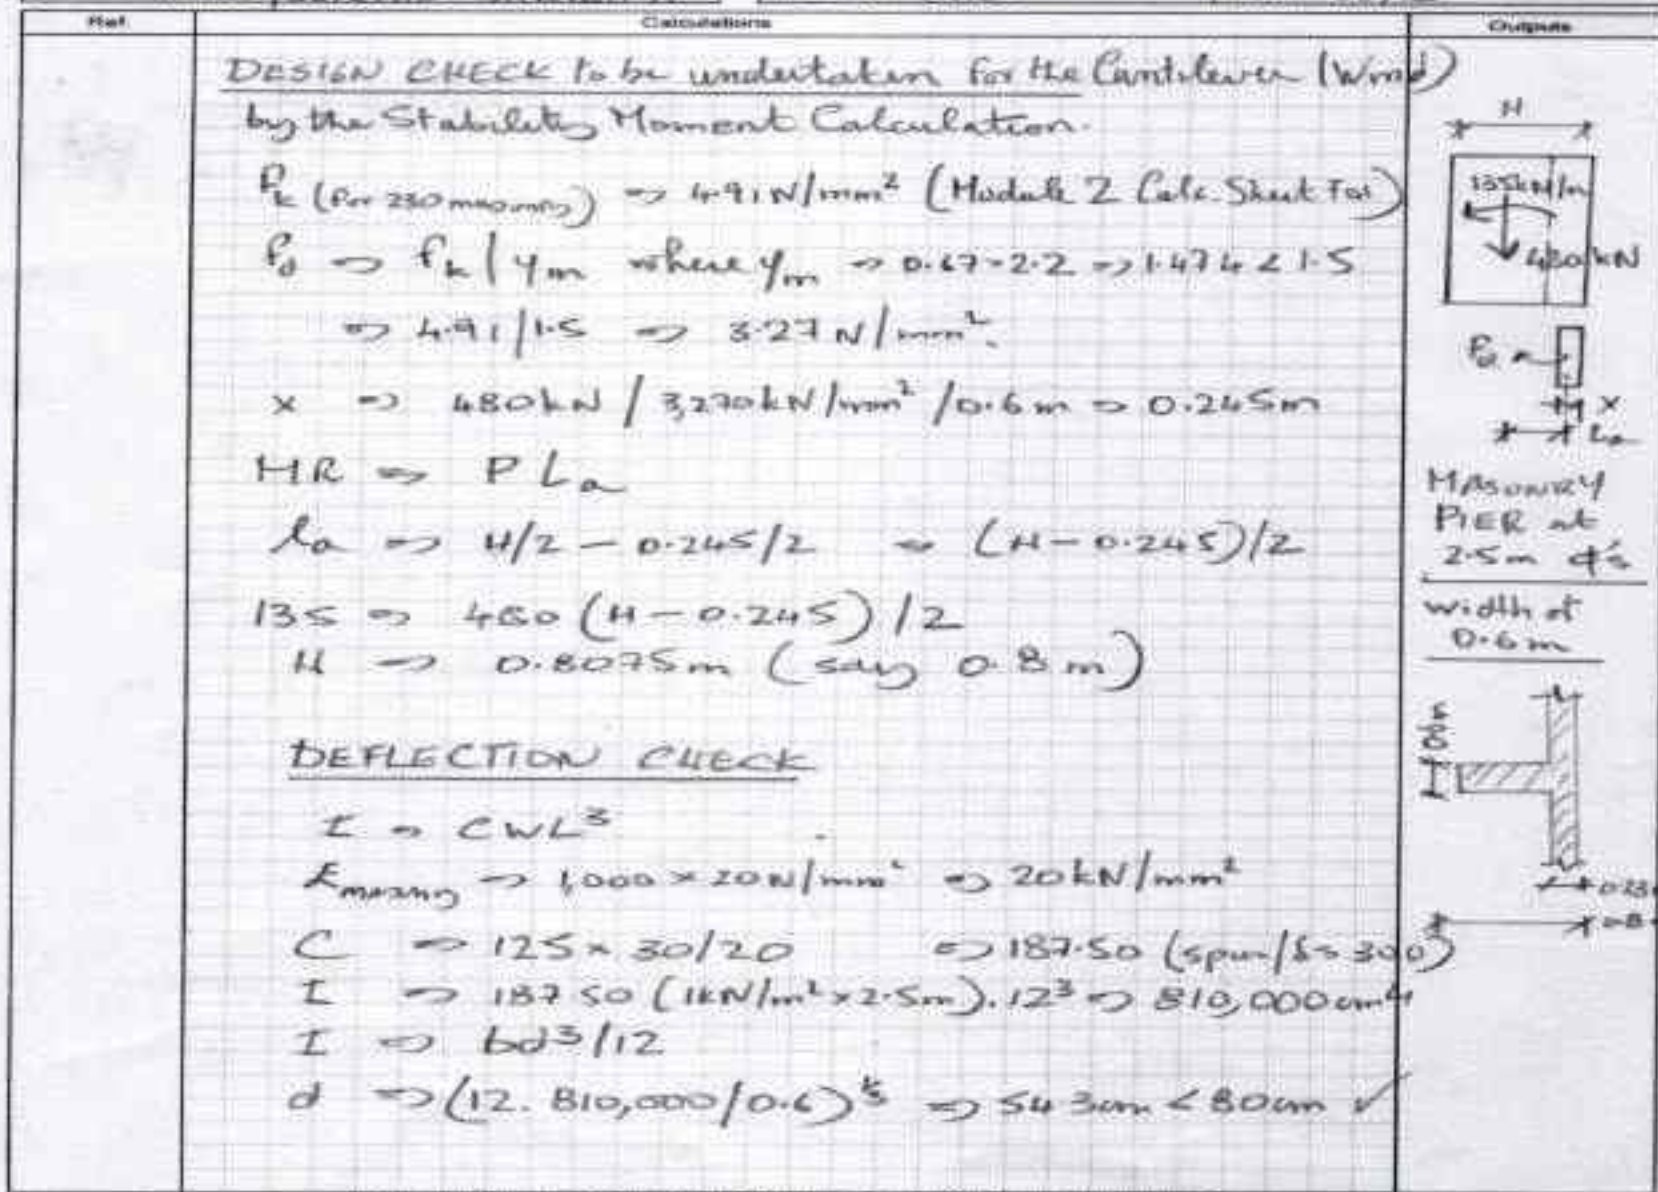 Ref.
Calculations
Outputs
DESIGN CHECK to be undertaken for the Cantilever (Wind)
by the Stability Moment Calculation.
fk (for 230 masonry) => 4.91 N/mm² (Module 2 Calc. Sheet
fd => fk / γm where γm => 0.67 × 2.2 => 1.474 < 1.5
=> 4.91/1.5 => 3.27 N/mm².
x => 480kN / 3,270kN/mm² / 0.6m => 0.245m
MR => P La
la => H/2 - 0.245/2 => (H - 0.245)/2
135 => 480 (H - 0.245)/2
H => 0.8075m (say 0.8m)
DEFLECTION CHECK
I => CWL³
Emasonry => 1,000 × 20N/mm² => 20kN/mm²
C => 125 × 30/20 => 187.50 (span/δ => 300)
I => 187.50 (1kN/m² × 2.5m).12³ => 810,000cm4
I => bd³/12
d => (12. 810,000/0.6)⅓ => 54.3cm < 80cm ✓
H
135kN/m
480 kN
fd
x
La
MASONRY
PIER at
2.5m ¢'s
width of
0.6m
0.23
0.8